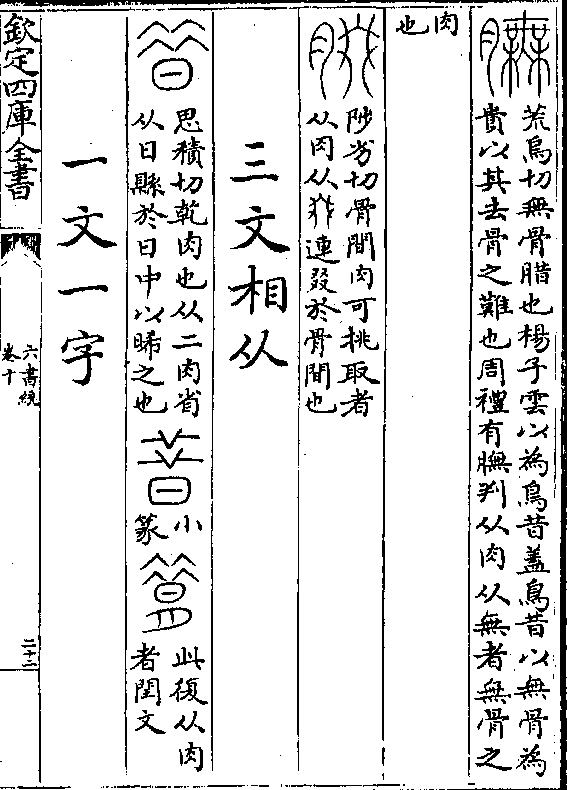 膴荒烏切無骨腊也楊子雲以為鳥昔蓋鳥昔以無骨為
貴以其去骨之難也周禮有膴判从肉从無者無骨之
肉
也
陟劣切骨間肉可挑取者
从肉从叕連叕於骨間也
三文相从
思積切乾肉也从二肉省
从日縣於日中以晞之也
小
篆
此復从肉
者閏文
一文一字
欽定四庫全書
六書統
卷十
二十三